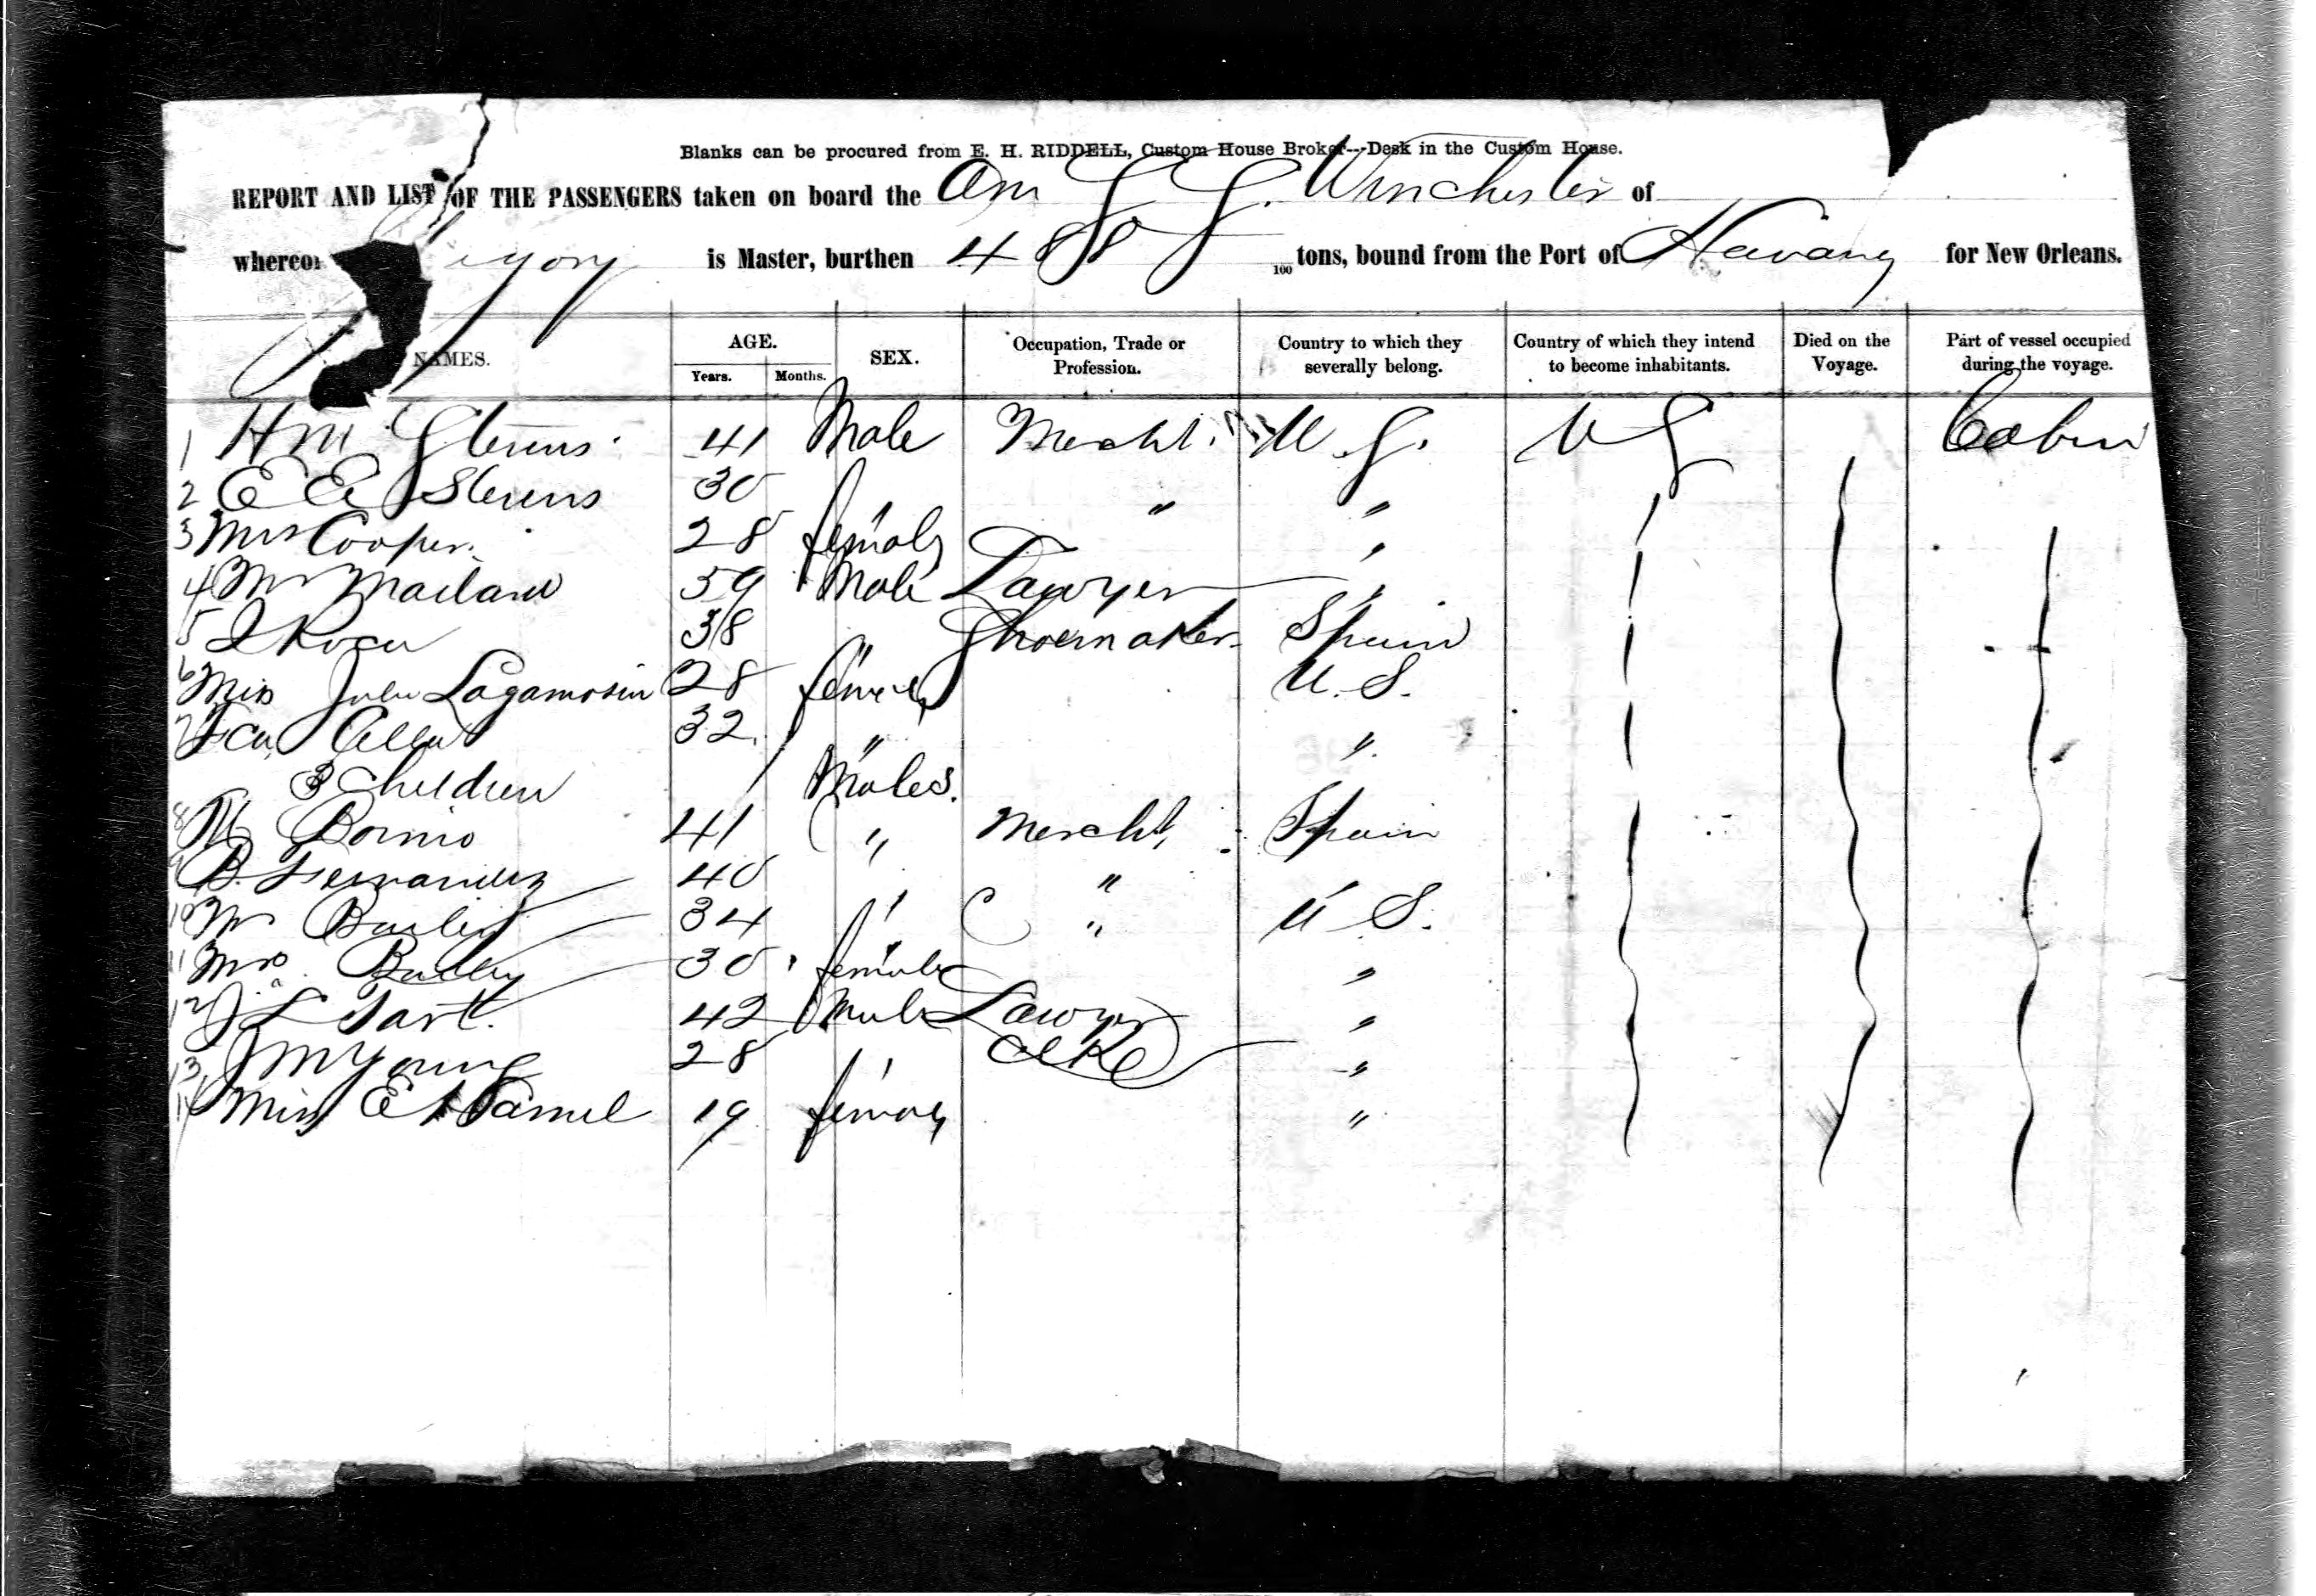 Blanks can be procured from E. H. RIDDELL, Custom House Broker---Desk in the Custom House.
REPORT AND LIST OF THE PASSENGERS taken on board the Am S S. Winchester of
whereon is Master, burthen 488 100 tons, bound from the Port of Havana for New Orleans.
NAMES. AGE. Years. Months. SEX. Occupation, Trade or Profession. Country to which they severally belong. Country of which they intend to become inhabitants. Died on the Voyage. Part of vessel occupied during the voyage.
1 H M Stevens 41 Male Mercht. U.S. U S Cabin
2 E E Stevens 30 " " "
3 Mrs Cooper. 28 female "
4 Mr 59 Male Lawyer "
5 38 " Shoemaker Spain
6 Miss 28 female U.S.
7 32. " "
3 Children Males.
8 41 " Mercht, Spain
9 B. Fernandez 40 " "
10 Mr Bailey 34 " " U S.
11 Mrs. Bailey 30 female "
12 J L Tart. 42 Male Lawyer "
13 J M Young 28 " Clk "
14 Miss E 19 female "